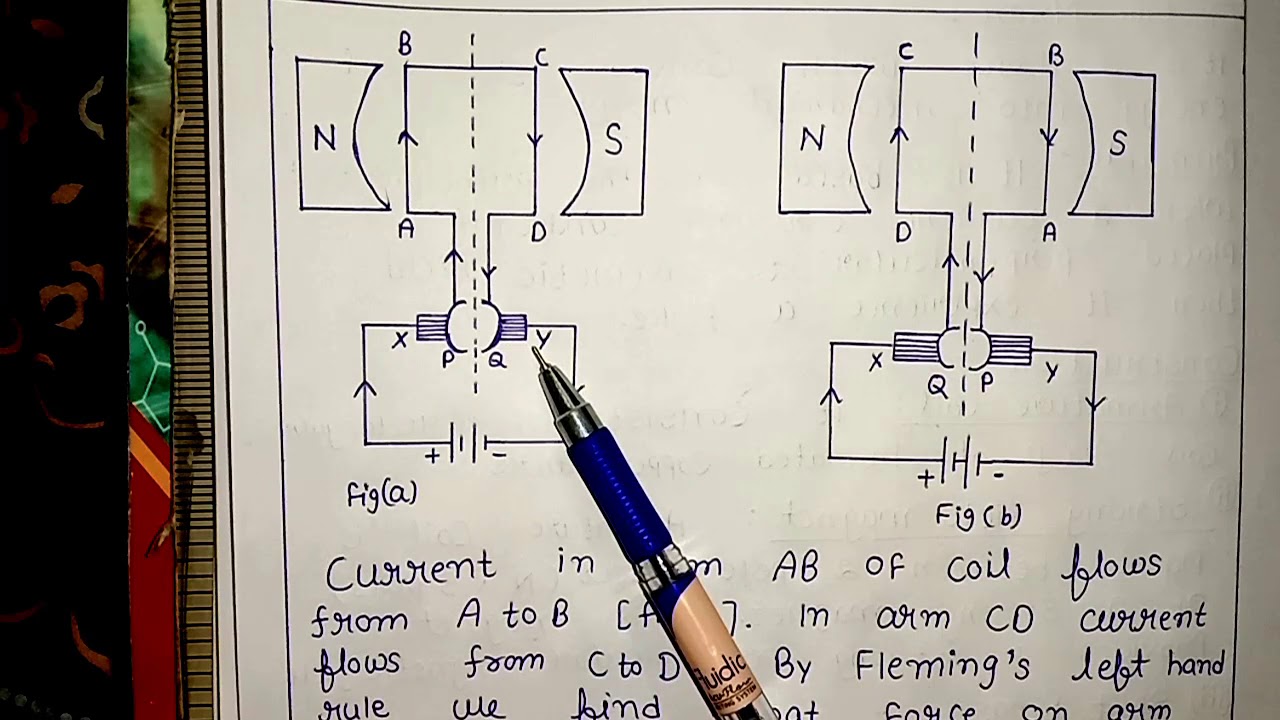 B C
N S
A D
X P Q y
+ -
Fig(a)
C B
N S
D A
X Q P y
+ -
Fig(b)
Current in m AB of coil flows
from A to B [f ]. In arm CD current
flows from C to D By Fleming's left hand
rule we find at force on arm
Fluidic